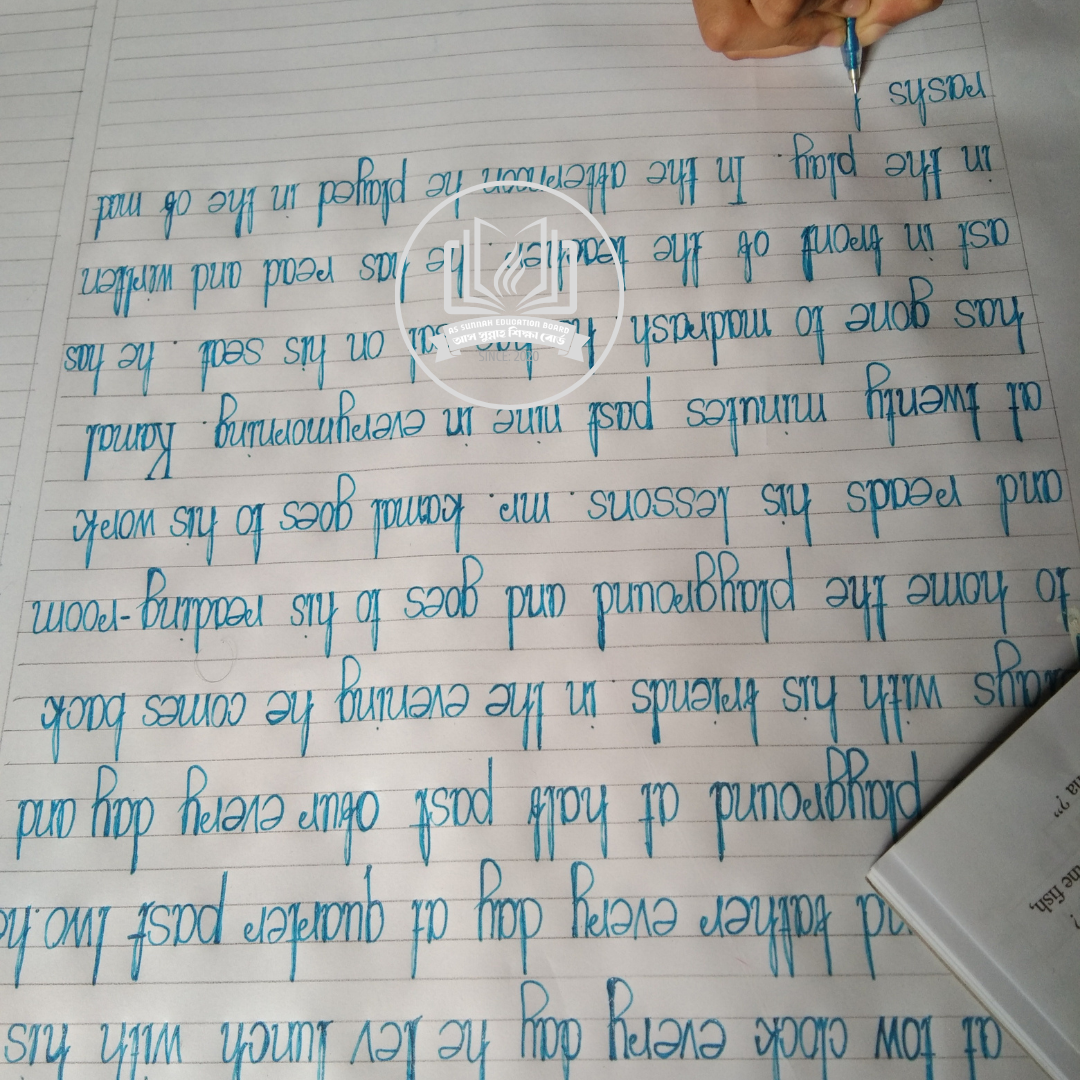 at tow clock every day he lev lunch with his
father every day at quarter past two. he
playgground at half past ofur every day and
with his friends. in the evening he comes back
to home the playgground and goes to his reading-room
and reads his lessons. mr. kamal goes to his work
at twenty minutes past nine in everymorning. Kamal
has gone to madrash he has sat on his seat. he has
ast in front of the teacher. he has read and wirtten
in the play. In the afternoon he played in the of mad
rashs
AS SUNNAH EDUCATION BOARD
আস সুন্নাহ শিক্ষা বোর্ড
SINCE: 2020
fish,